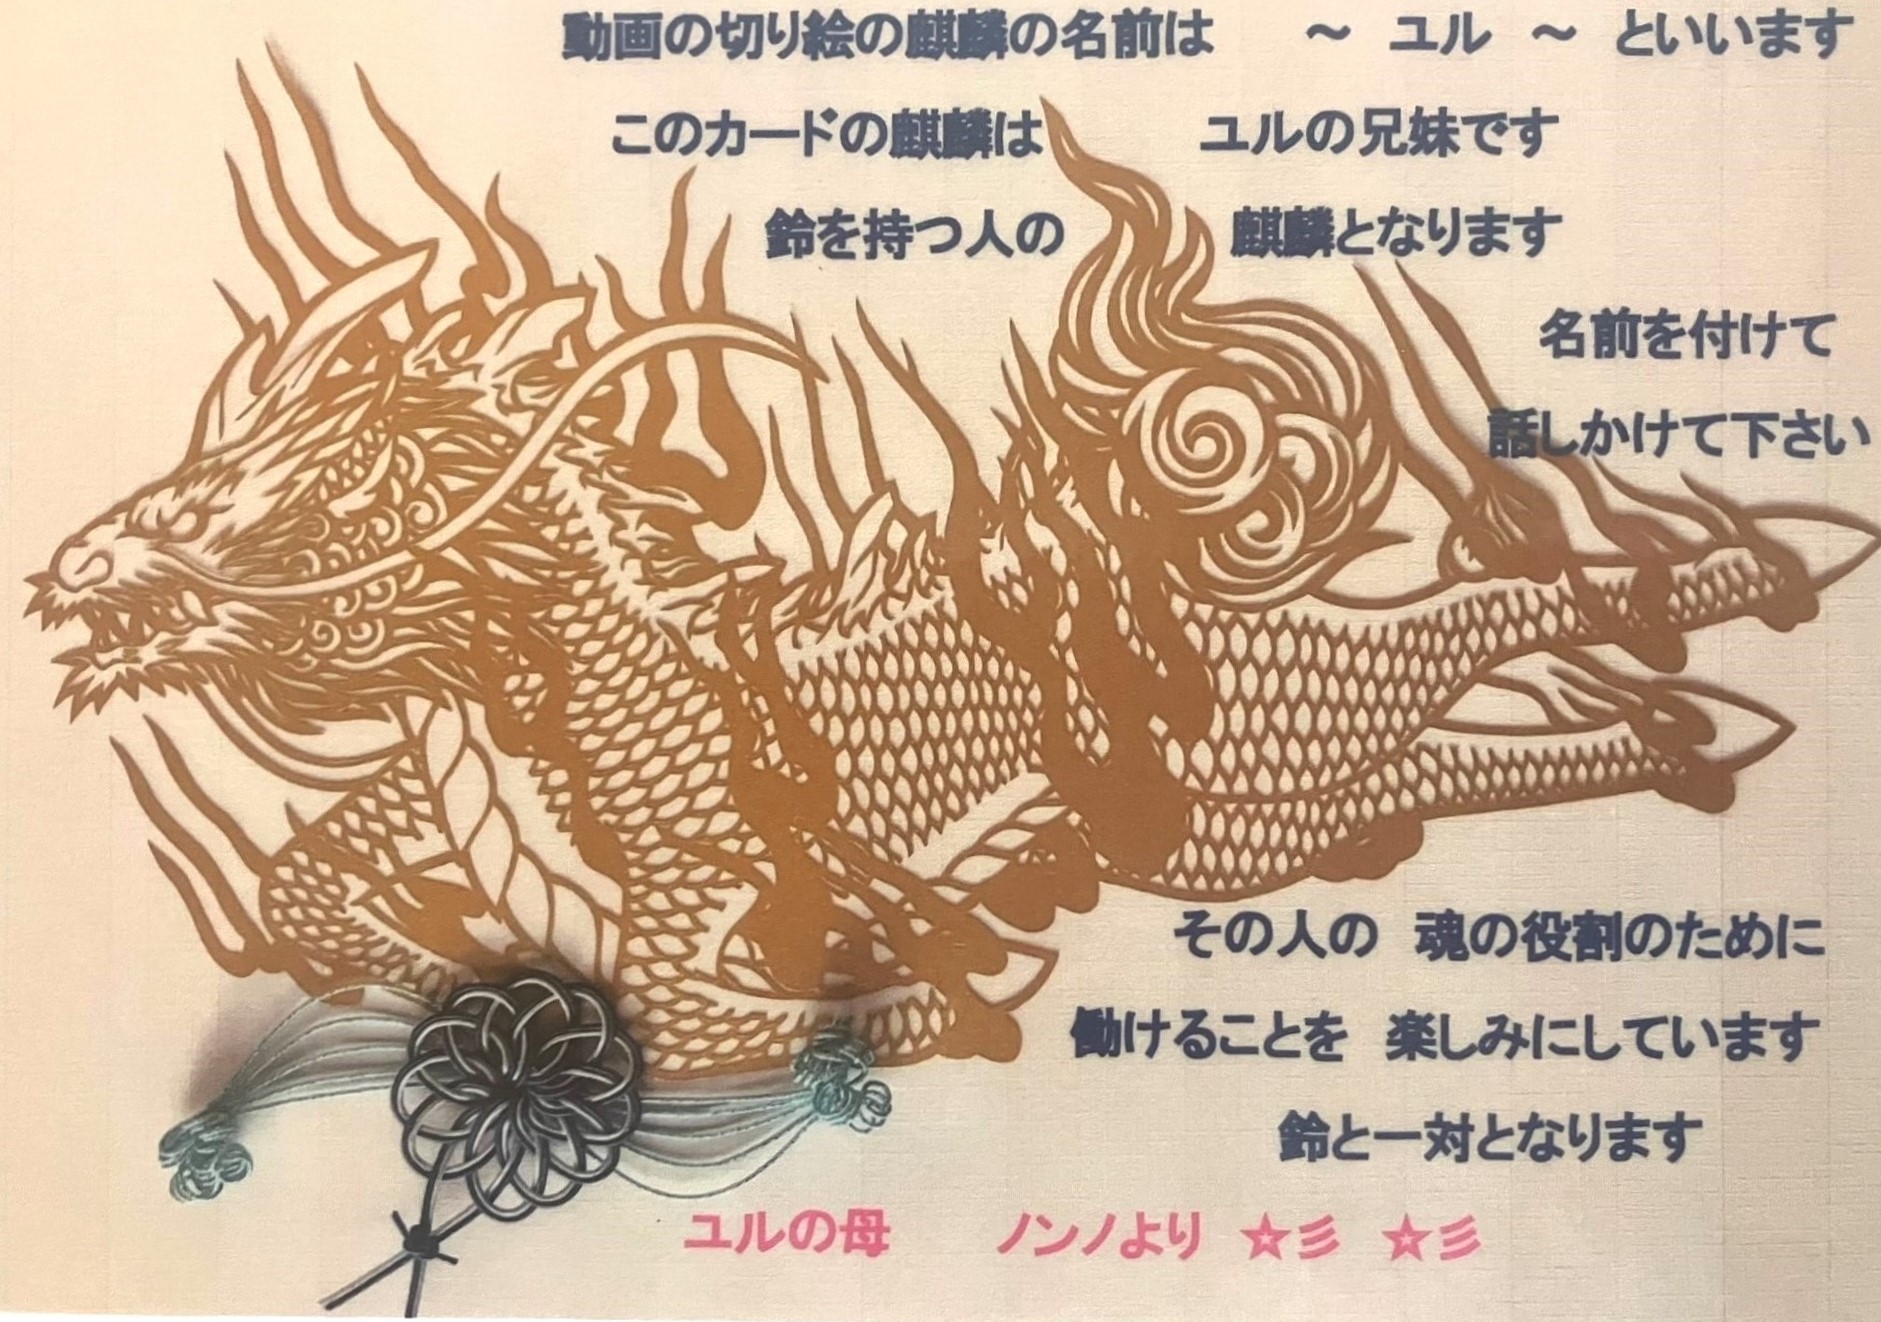 動画の切り絵の麒麟の名前は　　～　ユル　～　といいます
このカードの麒麟は　　ユルの兄妹です
鈴を持つ人の　　麒麟となります
名前を付けて
話しかけて下さい
その人の　魂の役割のために
働けることを　楽しみにしています
鈴と一対となります
ユルの母　　ノンノより ☆彡 ☆彡